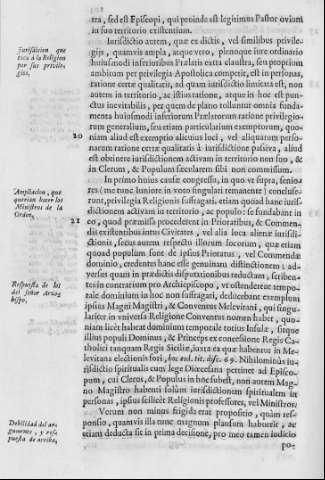 tra, sed est Episcopi, qui proinde est legitimus Pastor ovium
in suo territorio existentium.
Jurisdicion que
toca à la Religion
por sus privile-
gios,
Iurisdictio autem, quæ ex dictis, vel similibus privile-
gijs, quamvis ampla, atque vero, plenoque iure ordinario
huiusmodi inferioribus Prælatis extra claustra, seu proprium
ambitum per privilegia Apostolica competit, est in personas,
ratione certæ qualitatis, ad quam iurisdictio limitata est, non
autem in territorio, ac istius ratione, atque in hoc est pun-
ctus inevitabilis, per quem de plano tolluntur omnia funda-
menta huiusmodi inferiorum Prælatorum ratione privilegio-
20
rum generalium, seu etiam particularium exemptorum, quo-
niam aliud est exemptio alicuius loci, vel aliquarum perso-
narum ratione certæ qualitatis à iurisdictione passiva, aliud
est obtinere iurisdictionem activam in territorio non suo, &
in Clerum, & Populum sæcularem sibi non commissum.
Ampliacion, que
querian hacer los
Ministros de la
Orden,
In primo huius causæ congressu, in quo vt supra, senio-
res (me tunc iuniore in voto singulari remanente) concluse-
runt, privilegia Religionis suffragari, etiam quoad hanc juris-
dictionem activam in territorio, ac populo: se fundabant in
21
eo, quod præmissa procederent in Prioratibus, & Commen-
dis existentibus intus Civitates, vel alia loca alienæ iurisdi-
ctionis, secus autem respectu illorum locorum, quæ etiam
quoad populum sunt de ipsius Prioratus, vel Commendæ
dominio, credentes hanc esse genuinam distinctionem; ad-
Respuesta de los
del señor Arzo-
bispo,
versus quam in prædictis disputationibus reductam, scribe-
tes in contrarium pro Archiepiscopo, vt ostenderent tempo-
rale dominium in hoc non suffragari, deducebant exemplum
ipsius Magni Magistri, & Conventus Melevitani, qui singu-
lariter in vniversa Religione Conventus nomen habet, quo-
niam licèt habeat dominium temporale totius Insulæ, sitque
illius populi Dominus, & Princeps ex concessione Regis Ca-
tholici tanquam Regis Siciliæ, iuxta ea quæ habentur in Me-
levitana electionis fori, hoc eod. tit. disc. 69. Nihilominùs iu-
risdictio spiritualis cum lege Diœcesana pertinet ad Episco-
pum, cui Clerus, & Populus in hoc subest, non autem Mag-
no Magistro habenti solùm iurisdictionem spiritualem in
personas, ipsius scilicèt Religionis professores, vel Ministros.
Debilidad del ar-
gumento, y res-
puesta de arriba,
Verum non minus frigida erat propositio, quàm res-
ponsio, quamvis illa tunc magnum plausum habuerit, ac
etiam deducta sit in prima decisione, pro meo tamen iudicio
po-